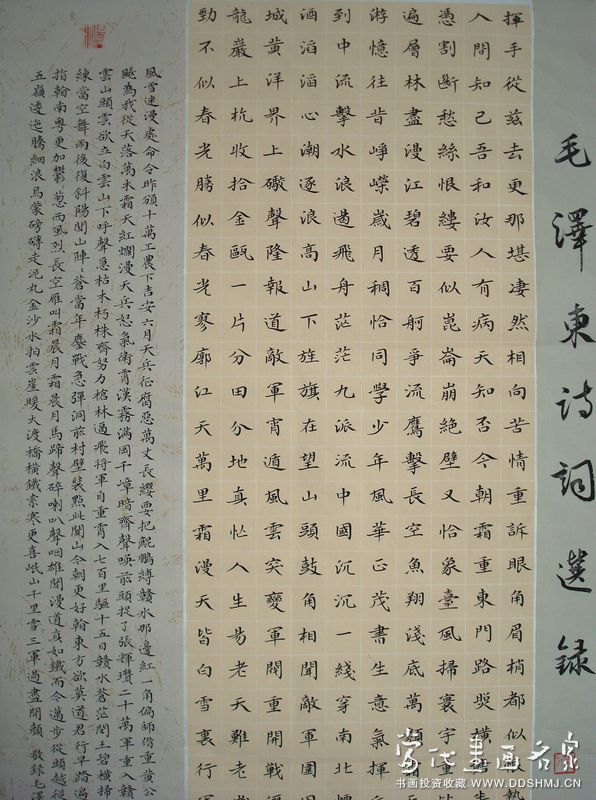 毛澤東詩詞選錄
揮手從茲去更那堪淒然相向苦情重訴眼角眉梢都似
人間知己吾和汝人有病天知否今朝霜重東門路哭橫
憑割斷愁絲恨縷要似崑崙崩絕壁又恰象臺風掃寰宇重
遍層林盡漫江碧透百舸爭流鷹擊長空魚翔淺底萬類霜
游憶往昔崢嶸歲月稠恰同學少年風華正茂書生意氣揮
到中流擊水浪遏飛舟茫茫九派流中國沉沉一綫穿南北
酒滔滔心潮逐浪高山下旌旗在望山頭鼓角相聞敵軍圍
城黃洋界上礮聲隆報道敵軍宵遁風雲突變軍閥重開
龍巖上杭收拾金甌一片分田分地真忙人生易老天難老
勁不似春光勝似春光寥廓江天萬里霜漫天皆白雪裏行
風雪迷漫處命令昨頒十萬工農下吉安六月天兵征腐惡萬丈長纓要把鯤鵬縛贛水那邊紅一角偏師借重黃公
颷為我從天落萬木霜天紅爛漫天兵怒氣衝霄漢霧滿岡千嶂暗齊聲喚前頭捉了張輝瓚二十萬軍重入贛
雲山頭雲欲立白雲山下呼聲急枯木朽株齊努力槍林逼飛將軍自重霄入七百里驅十五日贛水蒼茫閩王碧橫掃
練當空舞雨後復斜陽關山陣々蒼當年鏖戰急彈洞前村壁裝點此關山今朝更好看東方欲曉莫道君行早踏遍
指看南粵更加鬱々蔥西風烈長空雁叫霜晨月霜晨月馬蹄聲碎喇叭聲咽雄關漫道真如鐵而今邁步從頭越從
五嶺逶迤騰細浪烏蒙磅礴走泥丸金沙水拍雲崖暖大渡橋橫鐵索寒更喜岷山千里雪三軍過盡開顏 敬錄毛澤
当代書画名家
书画投资收藏 WWW.DDSHMJ.CN